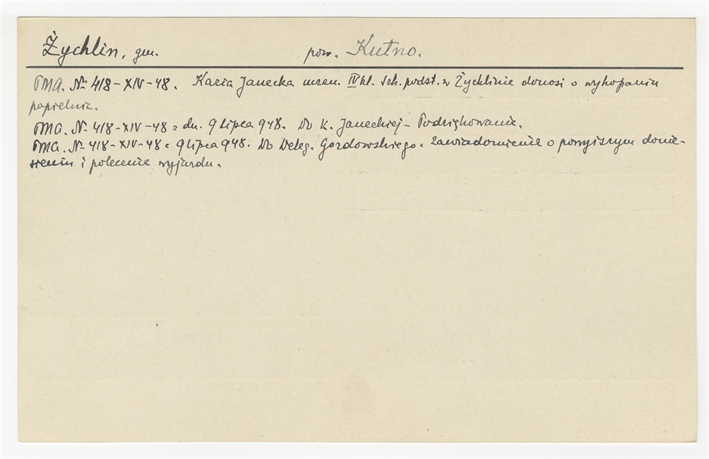 Żychlin, gm. pow. Kutno.
PMA. № 418-XIV-48. Kazia Janecka uczen. IV kl. szk. podst. w Żychlinie donosi o wykopaniu
popielnic.
PMA. № 418-XIV-48 z dn. 9 Lipca 948. Do K. Janeckiej - Podziękowanie.
PMA. № 418-XIV-48 z 9 Lipca 948. Do Deleg. Gozdowskiego. Zawiadomienie o powyższym donie-
sieniu i polecenie wyjazdu.